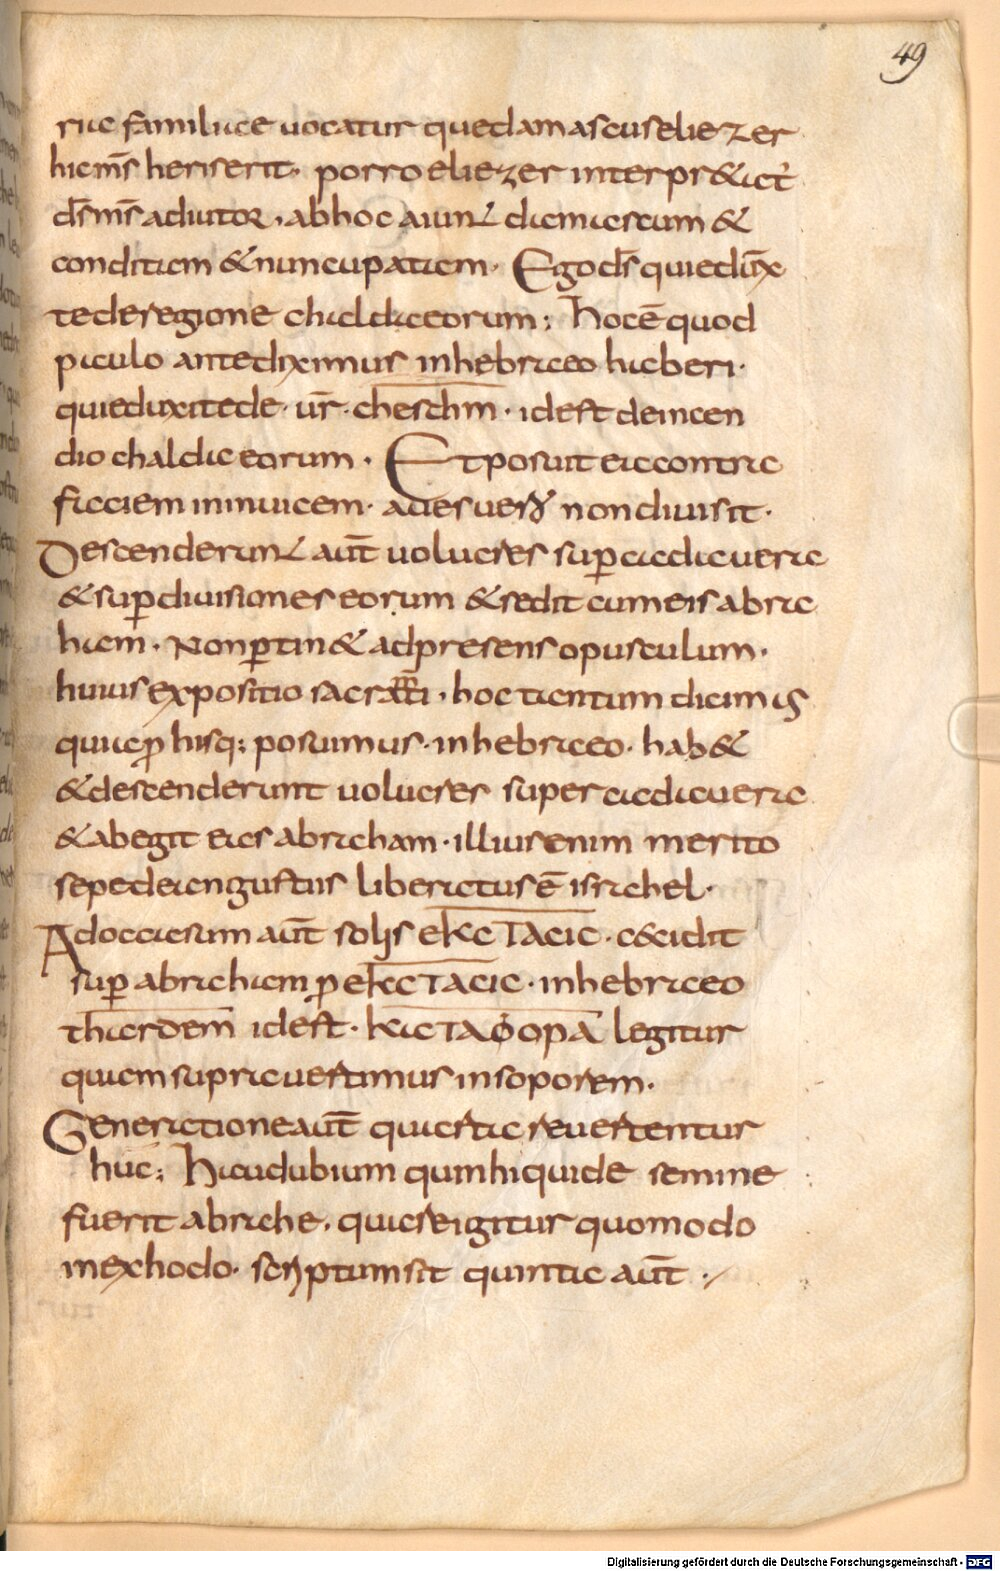 49
rae familiae uocatur quae damascus eliezer
hicm̅s heriserit. porro eliezer interpr&at᷒
d̅s m̅s adiutor. ab hoc aiunt damascum &
conditam & nuncupatam. Ego d̅s qui edux̅
te de regione chaldaeorum; hoc ē quod
paulo ante diximus in hebraeo haberi.
qui eduxit e de. ur̅. chesdim̅. id est de incen
dio chaldaeorum. Et posuit ea contra
faciem inuicem. aues uer̅ non diuisit.
Descenderunt aūt uolucres sup̲ cadauera
& sup̲ diuisiones eorum & sedit cum eis abra
ham. Non p̲tin& ad presens opusculum.
huius expositio sacram̅ti. hoc tantum dicimus
quia p̲ hisq; posuimus. in hebraeo. hab&
& descenderunt uolucres super cadauera
& abegit eas abraham. illius enim merito
sepe de angustiis liberatus ē israhel.
Ad occasum aūt solis ekcTacic. c&cidit
sup̲ abraham p̲ ekcTacic. in hebraeo
thardem̅ id est. kaTaφopa legitur
quam supra uertimus in soporem.
Generatione aūt quarta reuertentur
huc; Haud dubium quin hi qui de semine
fuerit abrahe. quaere igitur quomodo
in exhodo. scriptum sit quinta aūt ./
Digitalisierung gefördert durch die Deutsche Forschungsgemeinschaft - DFG